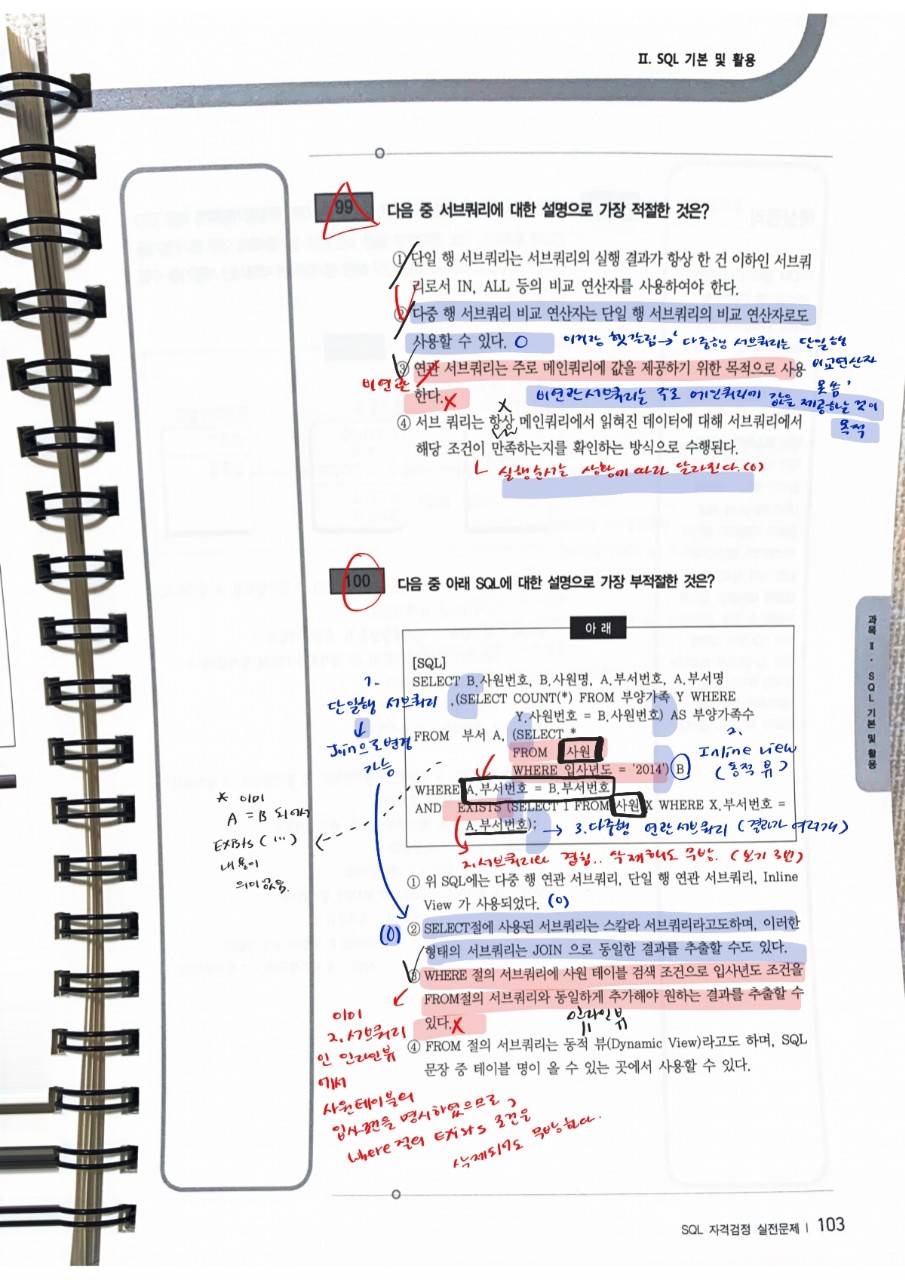 Ⅱ. SQL 기본 및 활용
99 다음 중 서브쿼리에 대한 설명으로 가장 적절한 것은?
① 단일 행 서브쿼리는 서브쿼리의 실행 결과가 항상 한 건 이하인 서브쿼
리로서 IN, ALL 등의 비교 연산자를 사용하여야 한다.
② 다중 행 서브쿼리 비교 연산자는 단일 행 서브쿼리의 비교 연산자로도
사용할 수 있다. O 이거랑 헷갈림→ '다중행 서브쿼리는 단일행
비교연산자
못씀'
③ 연관 서브쿼리는 주로 메인쿼리에 값을 제공하기 위한 목적으로 사용
비연관
한다. X 비연관서브쿼리는 주로 메인쿼리에 값을 제공하는 것이
목적
X
④ 서브 쿼리는 항상 메인쿼리에서 읽혀진 데이터에 대해 서브쿼리에서
해당 조건이 만족하는지를 확인하는 방식으로 수행된다.
ㄴ 실행순서는 상황에 따라 달라진다. (O)
100 다음 중 아래 SQL에 대한 설명으로 가장 부적절한 것은?
아 래
[SQL]
SELECT B.사원번호, B.사원명, A.부서번호, A.부서명
,(SELECT COUNT(*) FROM 부양가족 Y WHERE
Y.사원번호 = B.사원번호) AS 부양가족수
FROM 부서 A, (SELECT *
FROM 사원
WHERE 입사년도 = '2014') B
WHERE A.부서번호 = B.부서번호
AND EXISTS (SELECT 1 FROM 사원 X WHERE X.부서번호 =
A.부서번호);
1.
단일행 서브쿼리
↓
Join으로 변경
가능
2.
Inline view
(동적 뷰)
→ 3. 다중행 연관 서브쿼리 (결과가 여러개)
2. 서브쿼리와 결합.. 삭제해도 무방. (보기 3번)
* 이미
A = B 되어서
EXISTS (...)
내용이
의미없음.
① 위 SQL에는 다중 행 연관 서브쿼리, 단일 행 연관 서브쿼리, Inline
View 가 사용되었다. (O)
(O) ② SELECT절에 사용된 서브쿼리는 스칼라 서브쿼리라고도하며, 이러한
형태의 서브쿼리는 JOIN 으로 동일한 결과를 추출할 수도 있다.
③ WHERE 절의 서브쿼리에 사원 테이블 검색 조건으로 입사년도 조건을
FROM절의 서브쿼리와 동일하게 추가해야 원하는 결과를 추출할 수
있다. X
인라인뷰
④ FROM 절의 서브쿼리는 동적 뷰(Dynamic View)라고도 하며, SQL
문장 중 테이블 명이 올 수 있는 곳에서 사용할 수 있다.
이미
2. 서브쿼리
인 인라인뷰
에서
사원테이블의
명시하였으므로,
where 절의 EXISTS 조건을
삭제되어도 무방하다.
과목 Ⅱ · SQL 기본 및 활용
SQL 자격검정 실전문제 | 103